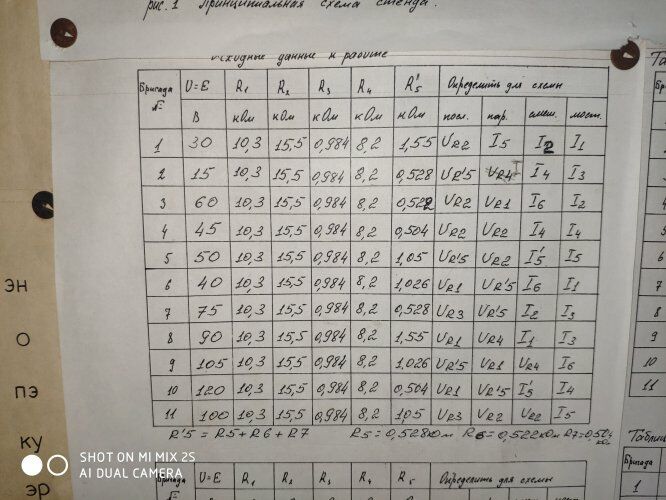 рис. 1 Принципиальная схема стенда.
Исходные данные к работе
Бригада № U=E R1 R2 R3 R4 R'5 Определить для схемы
В кОм кОм кОм кОм кОм посл. пар. смеш. мост.
1 30 10,3 15,5 0,984 8,2 1,55 UR2 I5 I2 I1
2 15 10,3 15,5 0,984 8,2 0,528 UR'5 UR4 I4 I3
3 60 10,3 15,5 0,984 8,2 0,522 UR2 UR1 I6 I2
4 45 10,3 15,5 0,984 8,2 0,504 UR2 UR2 I4 I4
5 50 10,3 15,5 0,984 8,2 1,05 UR'5 UR2 I'5 I5
6 40 10,3 15,5 0,984 8,2 1,026 UR1 UR'5 I6 I1
7 75 10,3 15,5 0,984 8,2 0,528 UR3 UR'5 I2 I3
8 90 10,3 15,5 0,984 8,2 1,55 UR1 UR4 I1 I3
9 105 10,3 15,5 0,984 8,2 1,026 UR'5 UR1 UR4 I6
10 120 10,3 15,5 0,984 8,2 0,504 UR1 UR'5 I'5 I4
11 100 10,3 15,5 0,984 8,2 105 UR3 UR2 UR2 I5
R'5 = R5+R6+R7 R5=0,528кОм R6=0,522кОм R7=0,504 кОм
Бригада U=E R1 R2 R3 R4 R5 Определить для схемы
эн
о
пэ
ку
эр
Та
8
9
10
11
Таблиц
1
SHOT ON MI MIX 2S
AI DUAL CAMERA